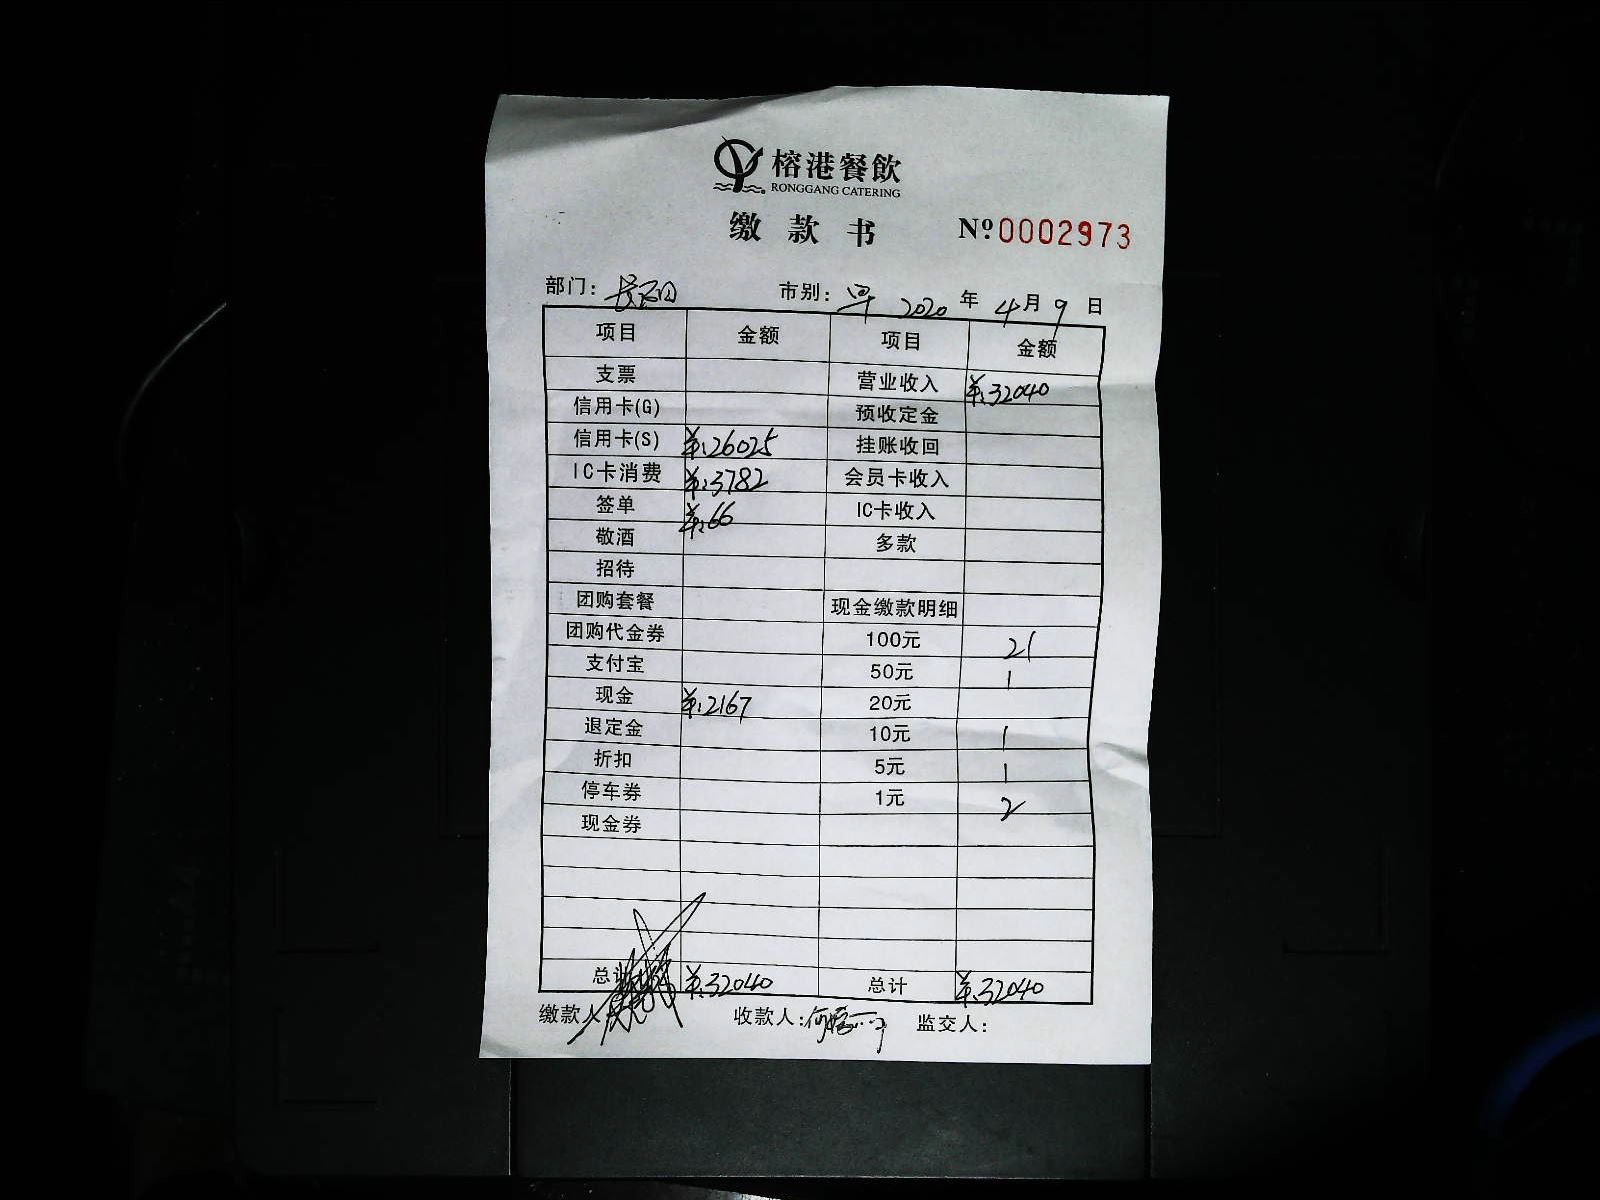 榕港餐飲
RONGGANG CATERING
缴款书 Nº0002973
部门: 市别: 2020年4月9日
项目 金额 项目 金额
支票 营业收入 ¥:32040
信用卡(G) 预收定金
信用卡(S) ¥:26025 挂账收回
IC卡消费 ¥:3782 会员卡收入
签单 ¥:66 IC卡收入
敬酒 多款
招待
团购套餐 现金缴款明细
团购代金券 100元 21
支付宝 50元 1
现金 ¥:2167 20元
退定金 10元 1
折扣 5元 1
停车券 1元 2
现金券
总计 ¥:32040 总计 ¥:32040
缴款人 收款人: 监交人: